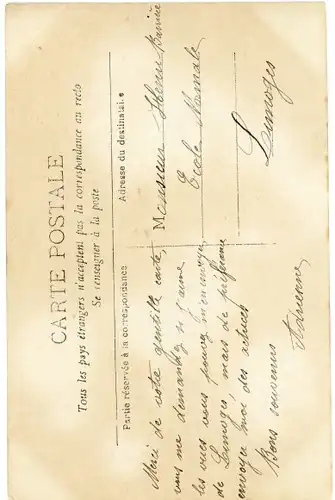 CARTE POSTALE
Tous les pays étrangers n'acceptent pas la correspondance au recto
Se renseigner à la poste
Partie réservée à la correspondance
Adresse du destinataire
Merci de votre gentille carte,
vous me demandez si j'aime
les vues vous pouvez m'en envoyer
de Limoges, mais de préférence
envoyez moi, des actrices
Bons souvenirs
Adrienne
Monsieur Henri
Ecole Normale
Limoges